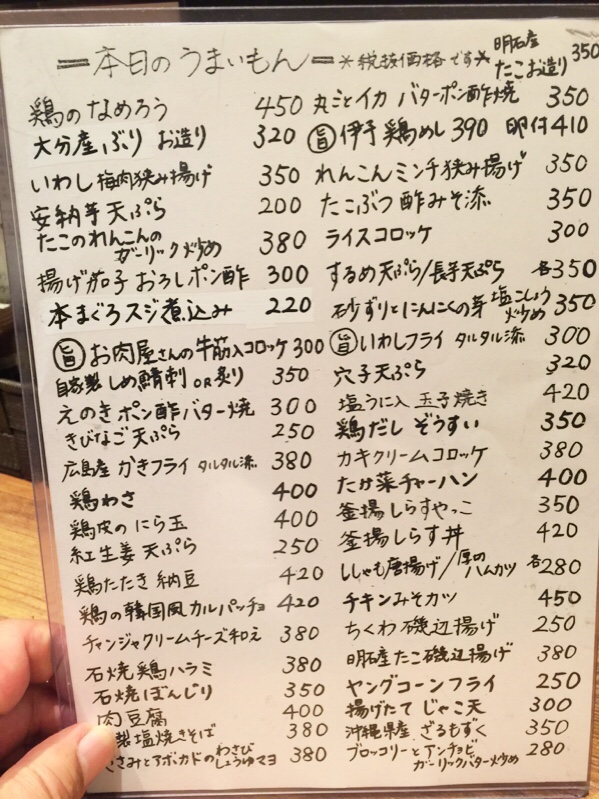 =本日のうまいもん= *税抜価格です*
明石産
たこお造り 350
鶏のなめろう 450
大分産ぶり お造り 320
いわし梅肉狭み揚げ 350
安納芋天ぷら 200
たこのれんこんの
ガーリック炒め 380
揚げ茄子 おろしポン酢 300
本まぐろスジ煮込み 220
旨 お肉屋さんの牛筋入コロッケ 300
自家製 しめ鯖刺 OR 炙り 350
えのきポン酢バター焼 300
きびなご天ぷら 250
広島産 かきフライ タルタル添 380
鶏わさ 400
鶏皮のにら玉 400
紅生姜天ぷら 250
鶏たたき納豆 420
鶏の韓国風カルパッチョ 420
チャンジャクリームチーズ和え 380
石焼鶏ハラミ 380
石焼ぼんじり 350
肉豆腐 400
製塩焼きそば 380
さみとアボカドのわさび
しょうゆマヨ 380
丸ごとイカ バターポン酢焼 350
旨 伊予鶏めし 390 卵付 410
れんこんミンチ狭み揚げ 350
たこぶつ酢みそ添 350
ライスコロッケ 300
するめ天ぷら/長芋天ぷら 各350
砂ずりとにんにくの芽 塩こしょう
炒め 350
旨 いわしフライ タルタル添 300
穴子天ぷら 320
塩うに入 玉子焼き 420
鶏だし ぞうすい 350
カキクリームコロッケ 380
たか菜チャーハン 400
釜揚しらすやっこ 350
釜揚しらす丼 420
ししゃも唐揚げ/厚の
ハムカツ 各280
チキンみそカツ 450
ちくわ磯辺揚げ 250
明石産たこ磯辺揚げ 380
ヤングコーンフライ 250
揚げたて じゃこ天 300
沖縄県産 ざるもずく 350
ブロッコリーとアンチョビ
ガーリックバター炒め 280